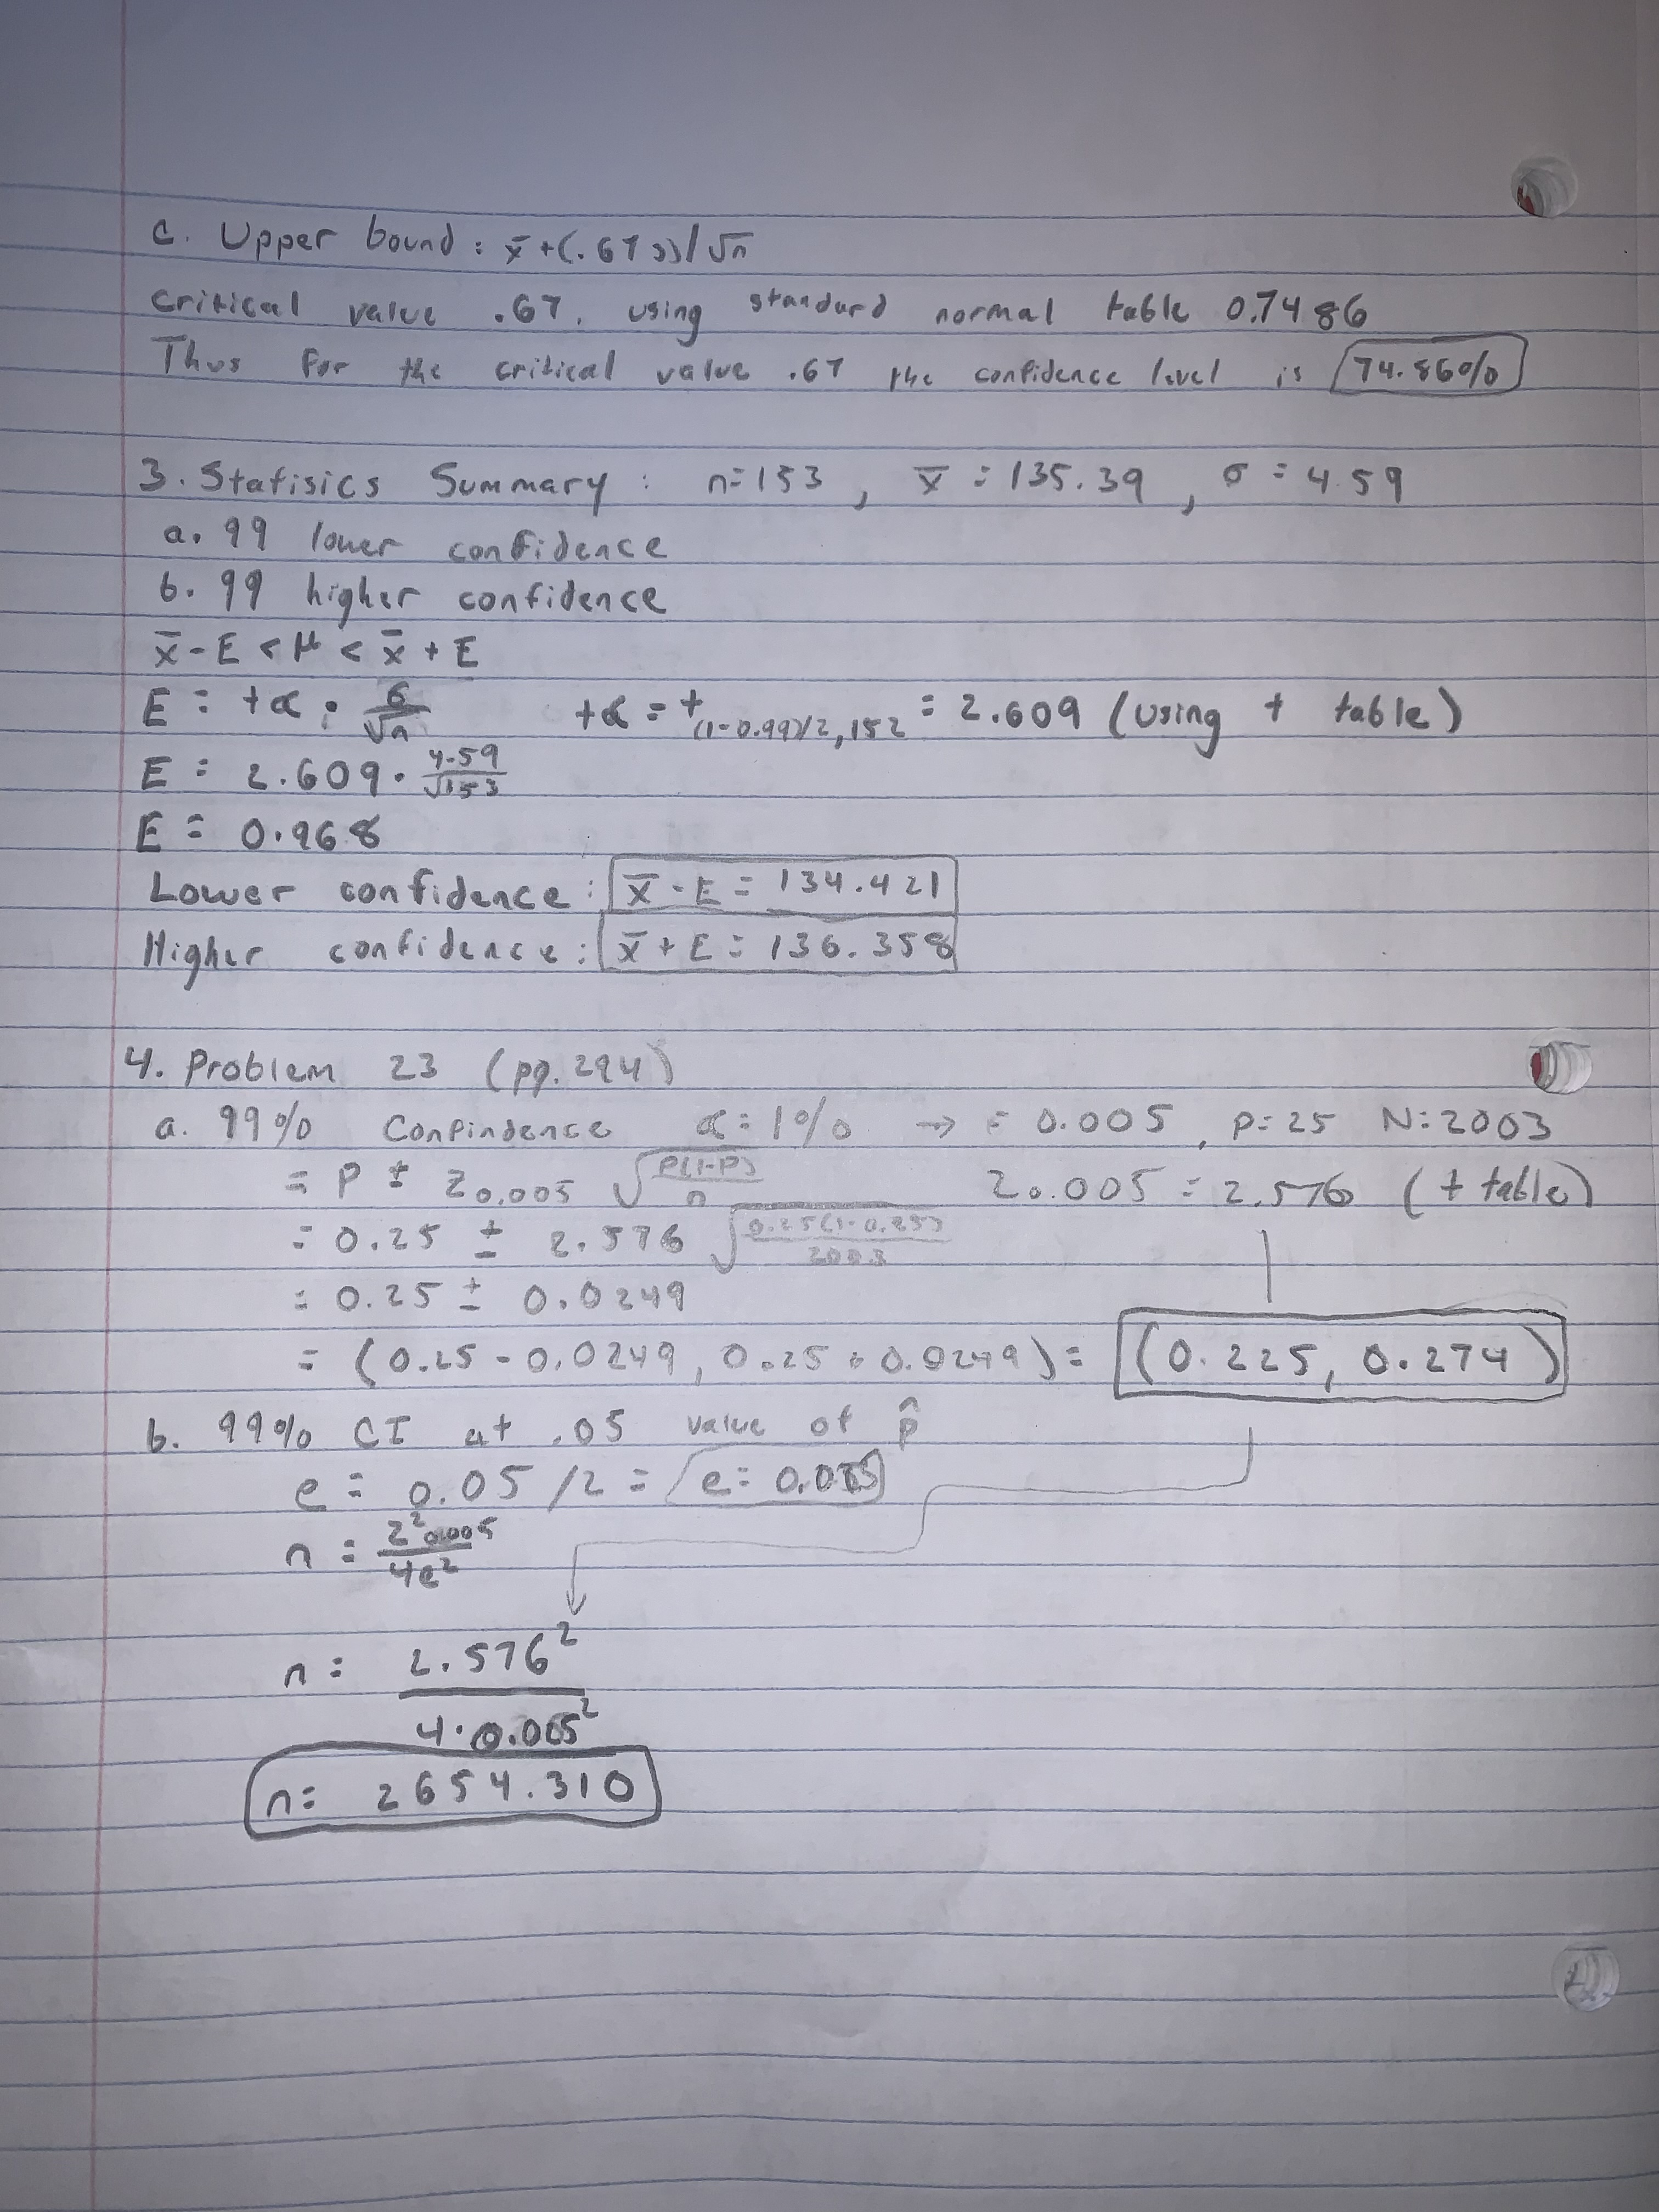 c. Upper bound: x̄+(.67s)/√n
Critical value .67, using standard normal table 0.7486
Thus for the critical value .67 the confidence level is 74.86%
3. Statisics Summary: n=153, x̄=135.39, σ=4.59
a. 99 lower confidence
b. 99 higher confidence
x̄-E<μ<x̄+E
E = tα · σ/√n tα = t(1-0.99)/2,152 = 2.609 (using t table)
E = 2.609 · 4.59/√153
E = 0.968
Lower confidence: x̄-E = 134.421
Higher confidence: x̄+E = 136.358
4. Problem 23 (pg. 294)
a. 99% Confindence α=1% → = 0.005, p=25 N=2003
= P ± Z0.005 √P(1-P)/n Z0.005 = 2.576 (t table)
= 0.25 ± 2.576 √0.25(1-0.25)/2003
= 0.25 ± 0.0249
= (0.25-0.0249, 0.25+0.0249) = (0.225, 0.274)
b. 99% CI at .05 value of p̂
e = 0.05/2 = e =
n = Z²0.005/4e²
n = 2.576²/4·
n = 2654.310